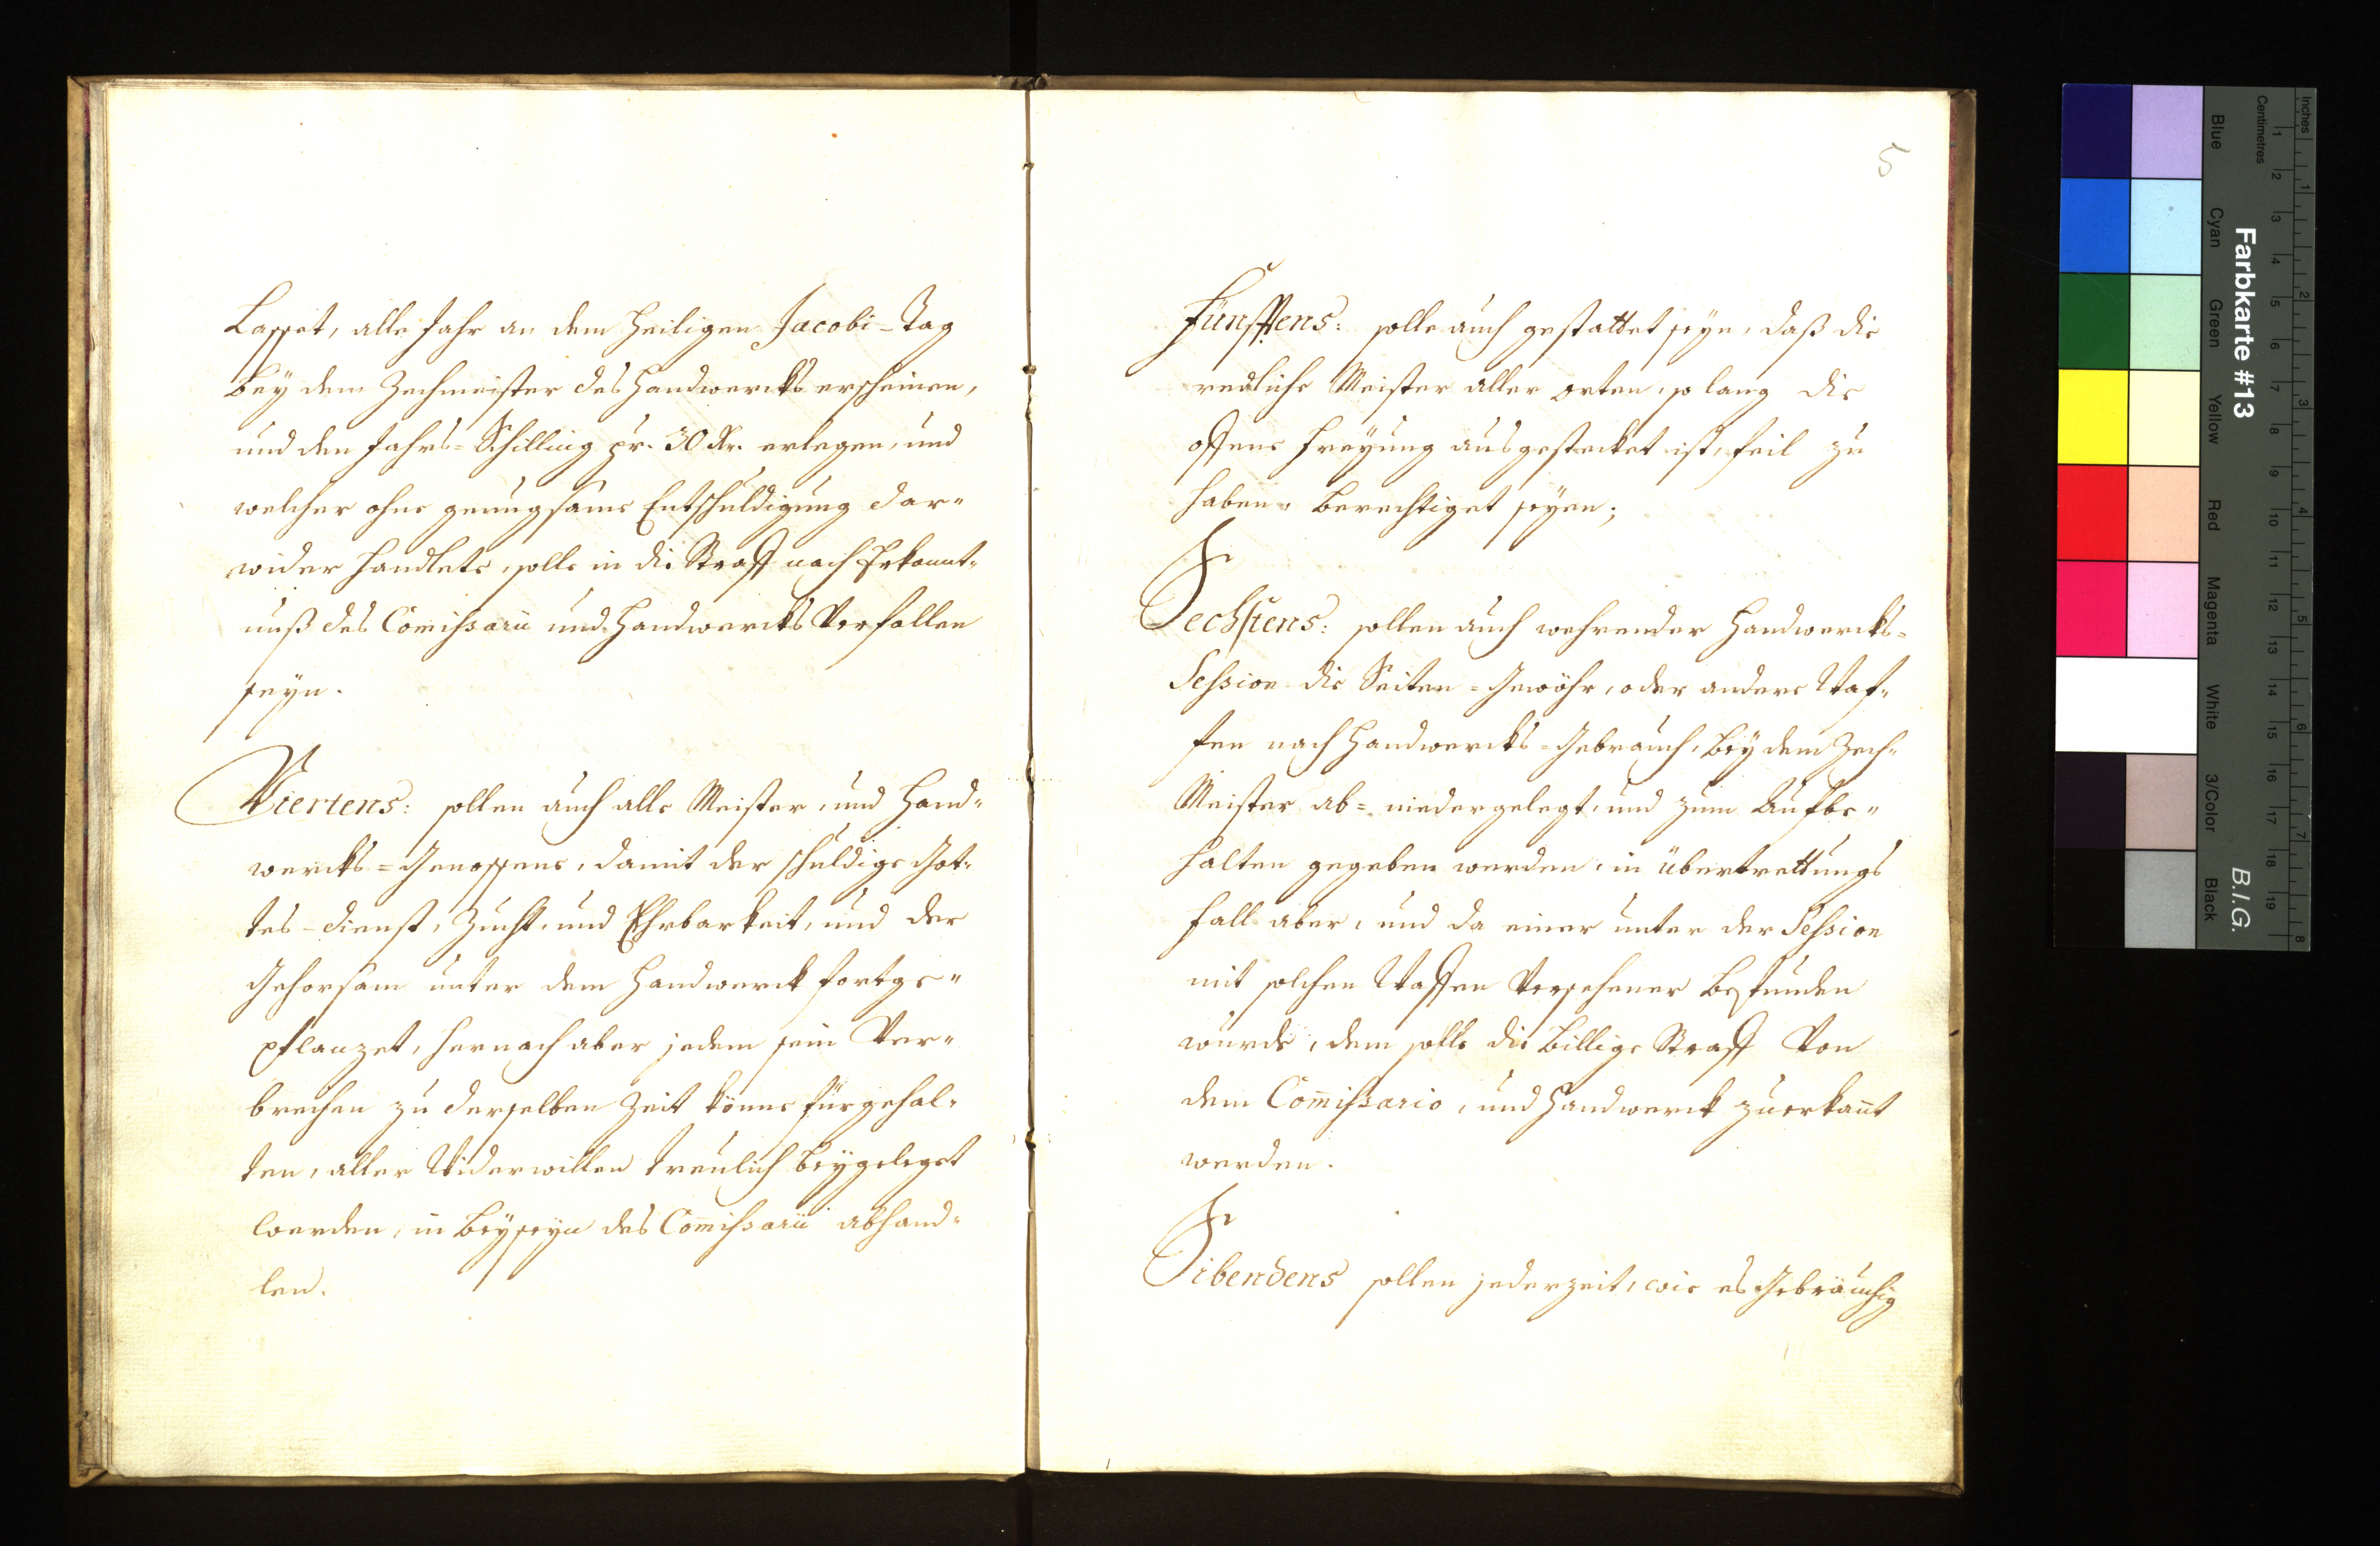 Lasset, alle Jahr an dem Heiligen Jacobi-Tag
bey dem Zechmeister des Handwercks erscheinen,
und den Jahrs=Schilling pr. 30 Kr. erlegen, und
welcher ohne genugsame Entschuldigung dar=
wider handlete, solle in die Straff nach Erkannt=
nuß des Com̄issarii und Handwercks Verfallen
seyn.
Viertens: sollen auch alle Meister, und Hand=
wercks=Genossene, damit der schuldige Got=
tes-dienst, Zucht, und Ehrbarkeit, und der
Gehorsam unter dem Handwerck fortge=
pflanzet, hernach aber jedem sein Ver=
brechen zu derselben Zeit könne fürgehal=
ten, aller Widerwillen treulich beygeleget
werden, in Beyseyn des Com̄issarii abhand=
len.
5
Fünfftens: solle auch gestattet seyn, daß die
redliche Meister aller orten, so lang die
offene Freyung ausgestecket ist, feil zu
haben, berechtiget seyen;
Sechstens: sollen auch wehrender Handwercks=
Session die Seiten=Gewöhr, oder andere Waf=
fen nach Handwercks=Gebrauch, bey dem Zech=
Meister ab= niedergelegt, und zum Aufbe=
halten gegeben werden, in übertrettungs
fall aber, und da einer unter der Session
mit solchen Waffen Versehener befunden
wurde, dem solle die billige Straff Von
dem Com̄issario, und Handwerck zuerkan̄t
werden.
Sibendens sollen jederzeit, wie es Gebräuchig
Farbkarte #13
B.I.G.
Inches
Centimetres
1 2 3 4 5 6 7 8
1 2 3 4 5 6 7 8 9 10 11 12 13 14 15 16 17 18 19
Blue
Cyan
Green
Yellow
Red
Magenta
White
3/Color
Black